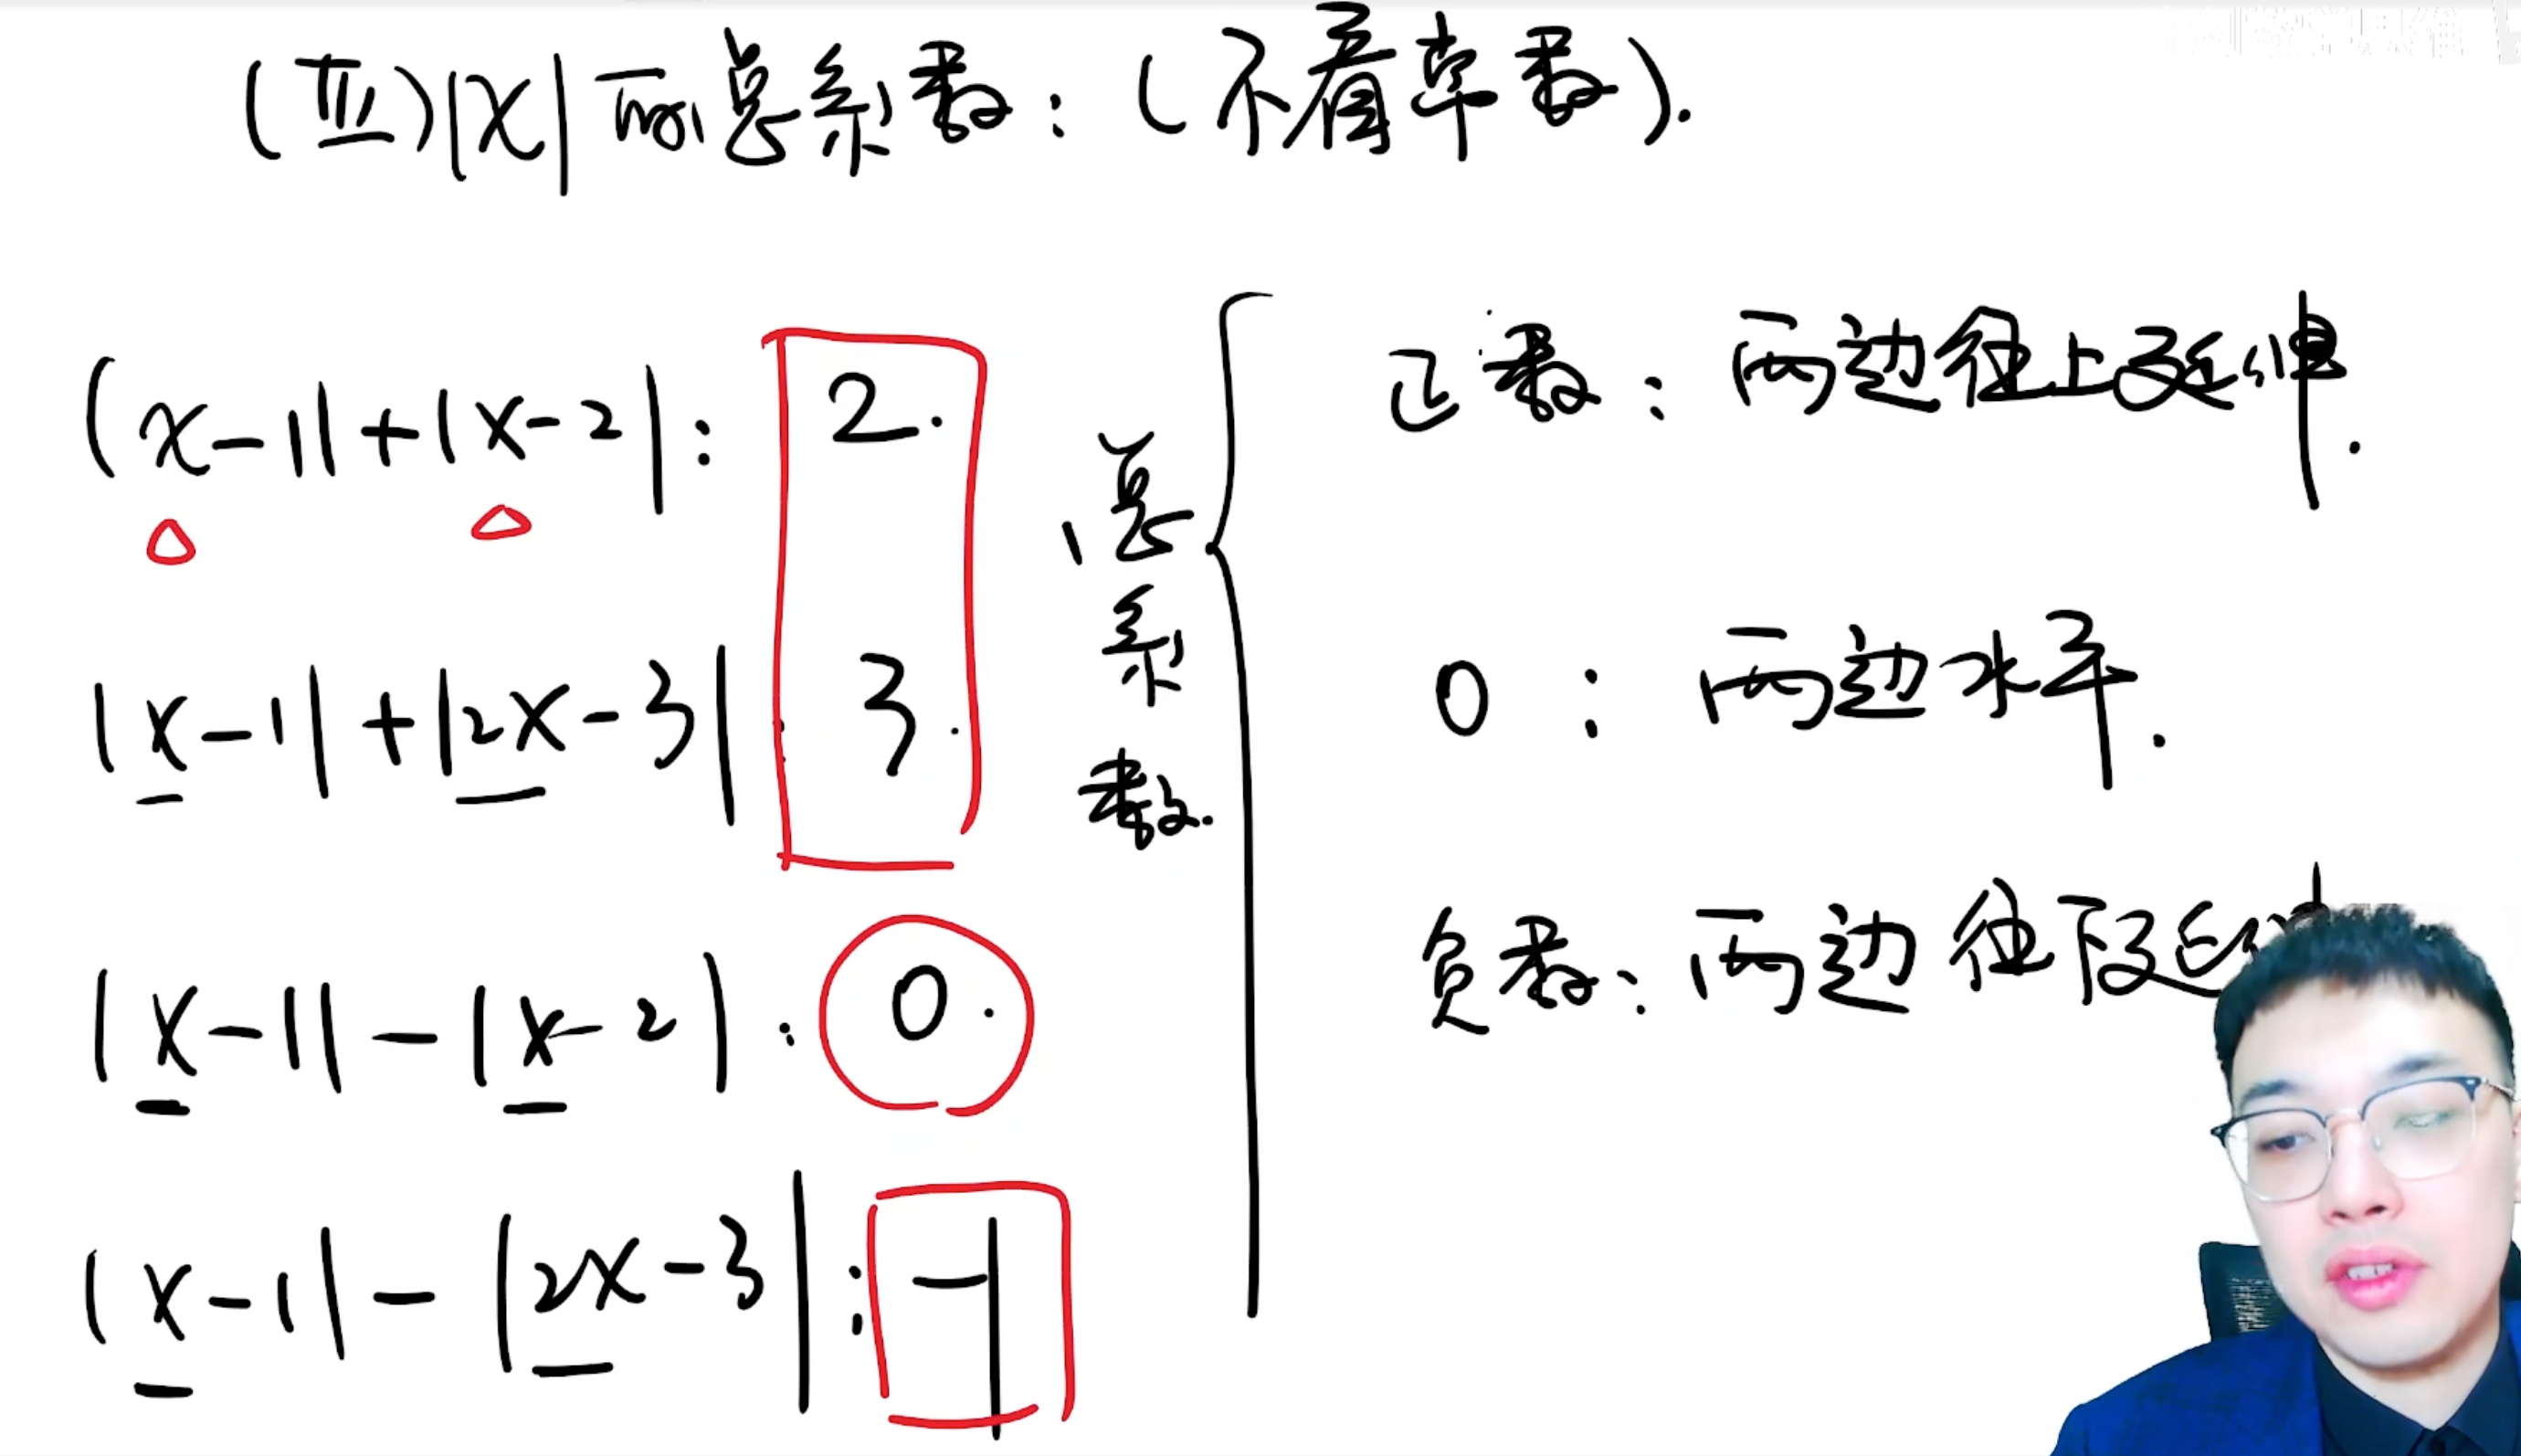 (Ⅲ)|x|的总系数:(不看常数).
|x-1|+|x-2|: 2.
|x-1|+|2x-3|: 3.
|x-1|-|x-2|: 0.
|x-1|-|2x-3|: -1
总系数.
正数:两边往上延伸.
0:两边水平.
负数:两边往下延